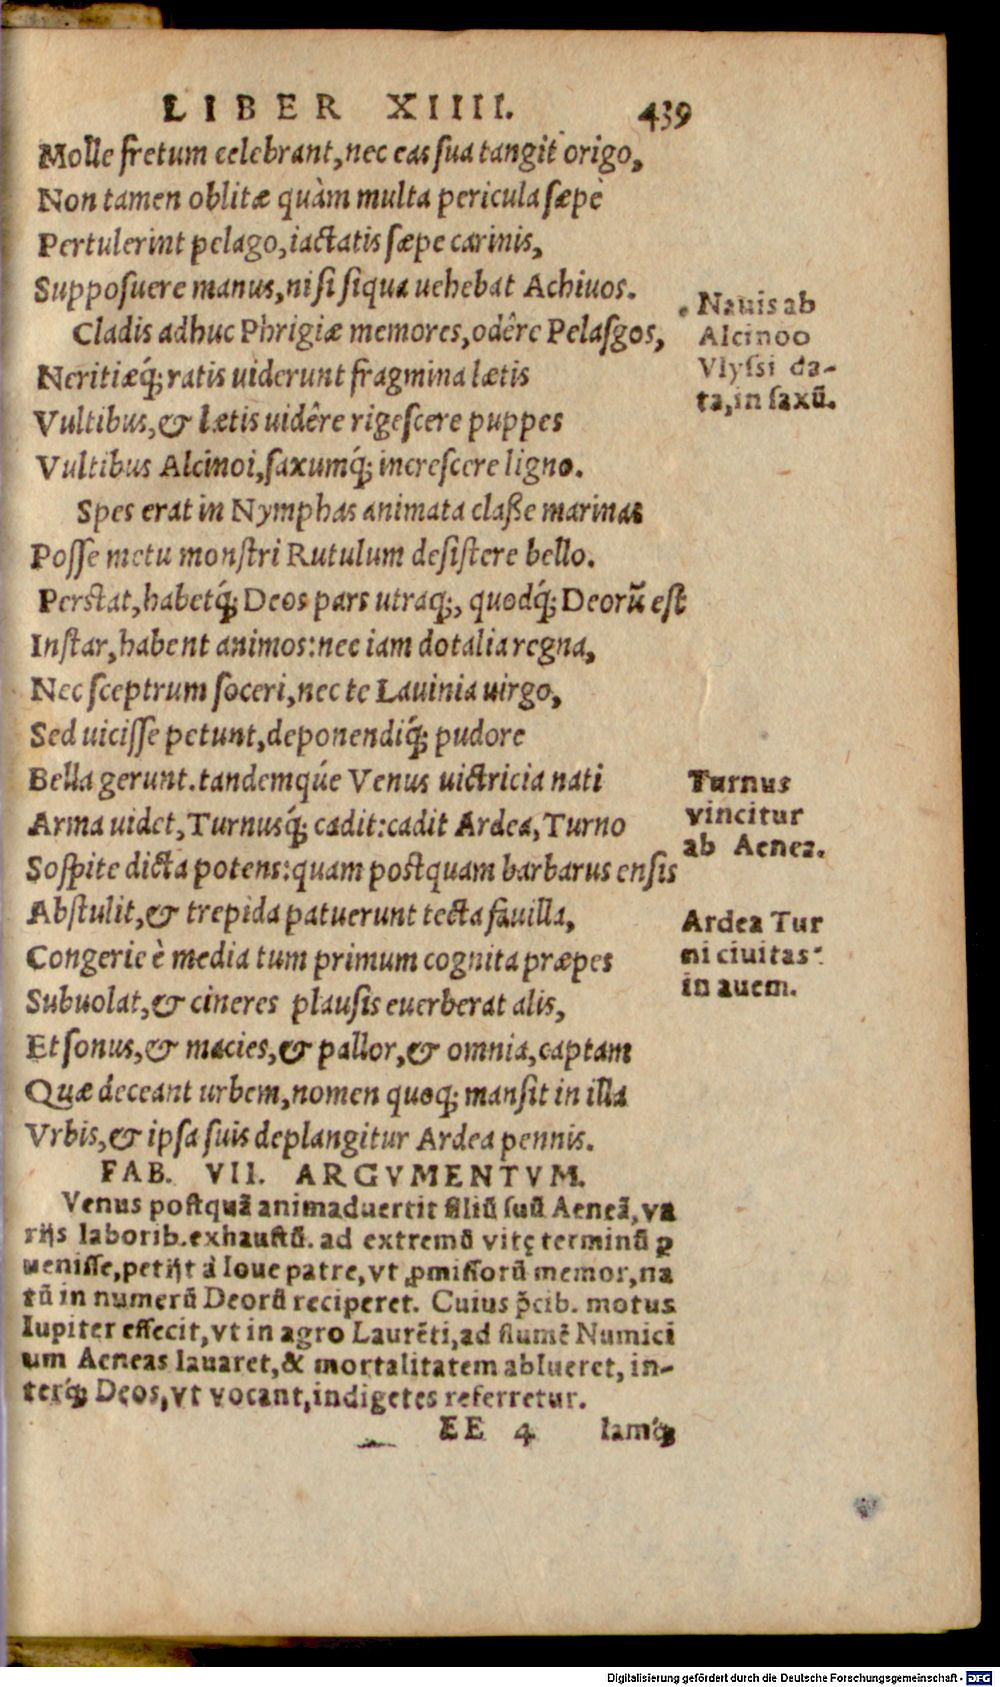 LIBER XIIII. 439
Molle fretum celebrant, nec eas sua tangit origo,
Non tamen oblitæ quàm multa pericula sæpè
Pertulerint pelago, iactatis sæpe carinis,
Supposuere manus, nisi siqua uehebat Achiuos.
Cladis adhuc Phrigiæ memores, odêre Pelasgos,
Neritiæq́; ratis uiderunt fragmina lætis
Vultibus, & lætis uidêre rigescere puppes
Vultibus Alcinoi, saxumq́; increscere ligno.
Nauis ab
Alcinoo
Vlyssi da-
ta, in saxũ.
Spes erat in Nymphas animata classe marinas
Posse metu monstri Rutulum desistere bello.
Perstat, habetq́; Deos pars utraq;, quodq́; Deorũ est
Instar, habent animos: nec iam dotalia regna,
Nec sceptrum soceri, nec te Lauinia uirgo,
Sed uicisse petunt, deponendiq́; pudore
Bella gerunt. tandemqúe Venus uictricia nati
Arma uidet, Turnusq́; cadit: cadit Ardea, Turno
Sospite dicta potens: quam postquam barbarus ensis
Turnus
vincitur
ab Aenea.
Abstulit, & trepida patuerunt tecta fauilla,
Congerie è media tum primum cognita præpes
Subuolat, & cineres plausis euerberat alis,
Ardea Tur
ni ciuitas
in auem.
Et sonus, & macies, & pallor, & omnia, captam
Quæ deceant urbem, nomen quoq; mansit in illa
Vrbis, & ipsa suis deplangitur Ardea pennis.
FAB. VII. ARGVMENTVM.
Venus postquã animaduertit filiũ suũ Aeneã, va
rijs laborib. exhaustũ. ad extremũ vitę terminũ ꝑ
uenisse, petijt à Ioue patre, vt ꝓmissorũ memor, na
tũ in numerũ Deorũ reciperet. Cuius p̃cib. motus
Iupiter effecit, vt in agro Laurẽti, ad flumẽ Numici
um Aeneas lauaret, & mortalitatem ablueret, in-
terq́; Deos, vt vocant, indigetes referretur.
EE 4 Iamq́;
Digitalisierung gefördert durch die Deutsche Forschungsgemeinschaft - DFG